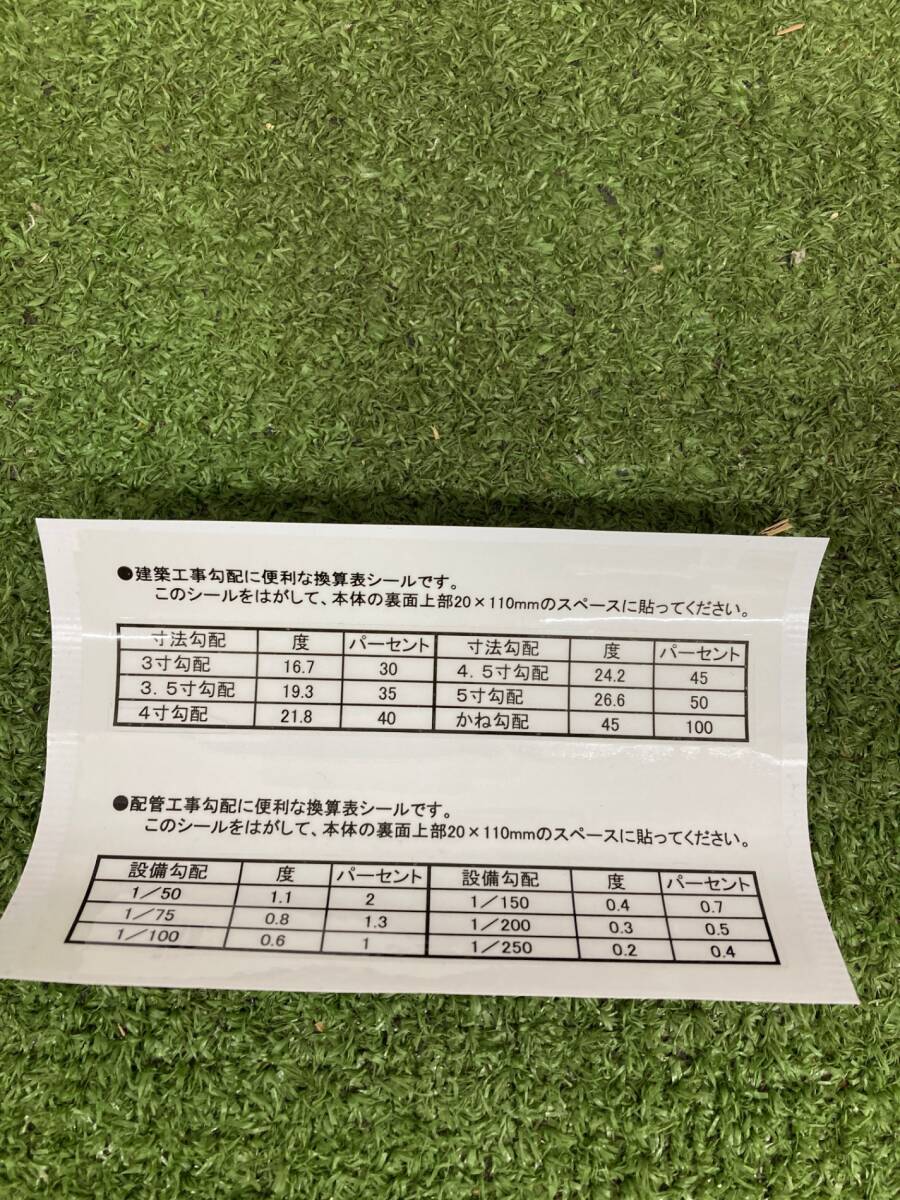 ●建築工事勾配に便利な換算表シールです。
このシールをはがして、本体の裏面上部20×110mmのスペースに貼ってください。
寸法勾配 度 パーセント 寸法勾配 度 パーセント
3寸勾配 16.7 30 4.5寸勾配 24.2 45
3.5寸勾配 19.3 35 5寸勾配 26.6 50
4寸勾配 21.8 40 かね勾配 45 100
●配管工事勾配に便利な換算表シールです。
このシールをはがして、本体の裏面上部20×110mmのスペースに貼ってください。
設備勾配 度 パーセント 設備勾配 度 パーセント
1/50 1.1 2 1/150 0.4 0.7
1/75 0.8 1.3 1/200 0.3 0.5
1/100 0.6 1 1/250 0.2 0.4